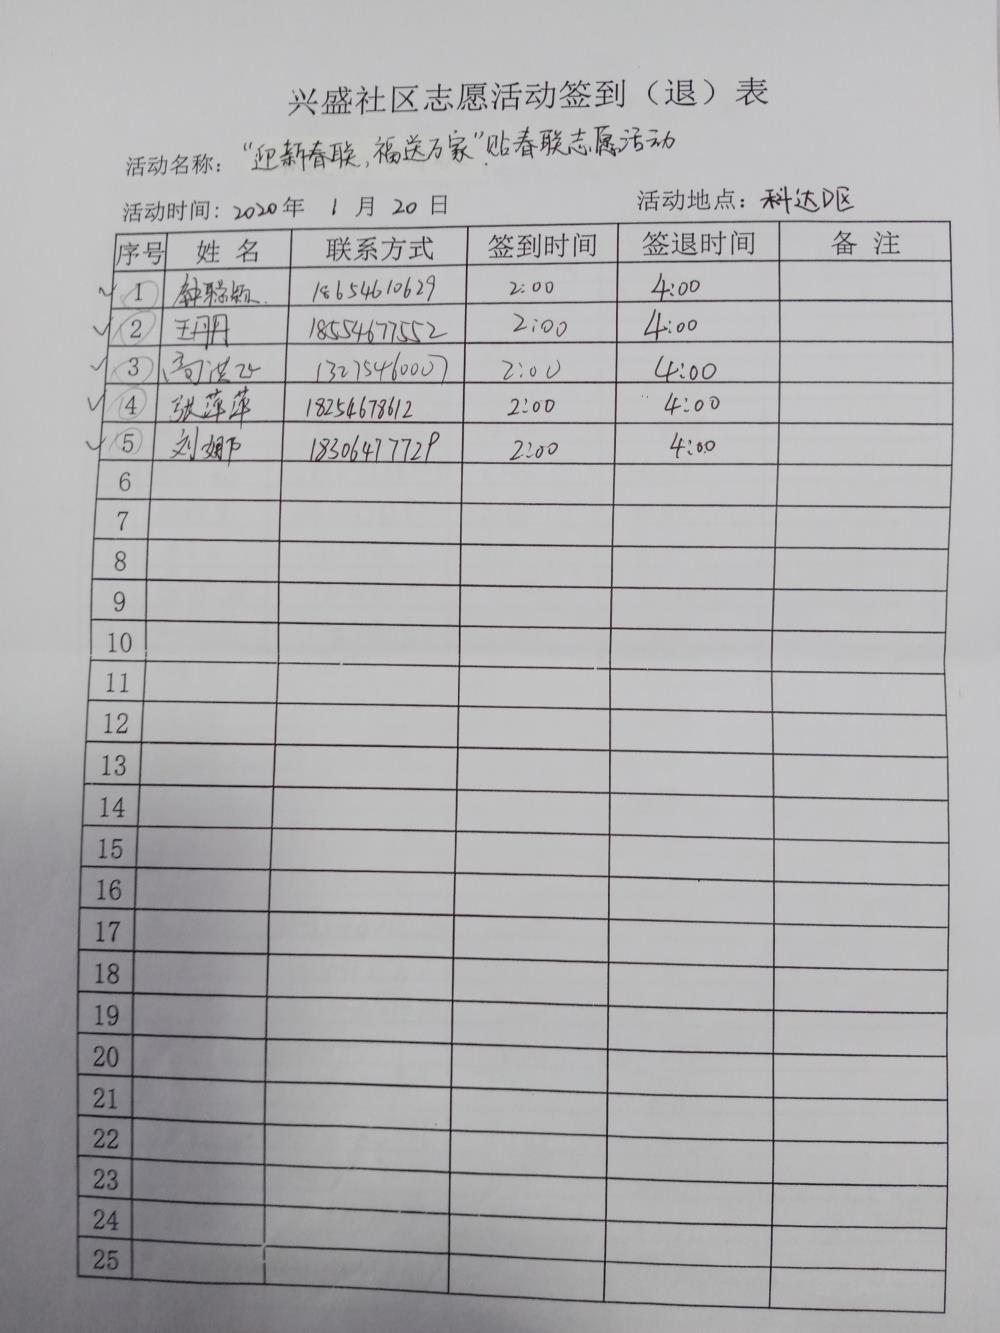 兴盛社区志愿活动签到（退）表
活动名称：“迎新春联，福送万家”贴春联志愿活动
活动时间：2020年 1 月 20 日 活动地点：科达D区
序号 姓 名 联系方式 签到时间 签退时间 备 注
1 18654610629 2:00 4:00
2 王丹丹 18554677552 2:00 4:00
3 高洪 13275460007 2:00 4:00
4 张萍萍 18254678612 2:00 4:00
5 刘娜 18306477729 2:00 4:00
6
7
8
9
10
11
12
13
14
15
16
17
18
19
20
21
22
23
24
25